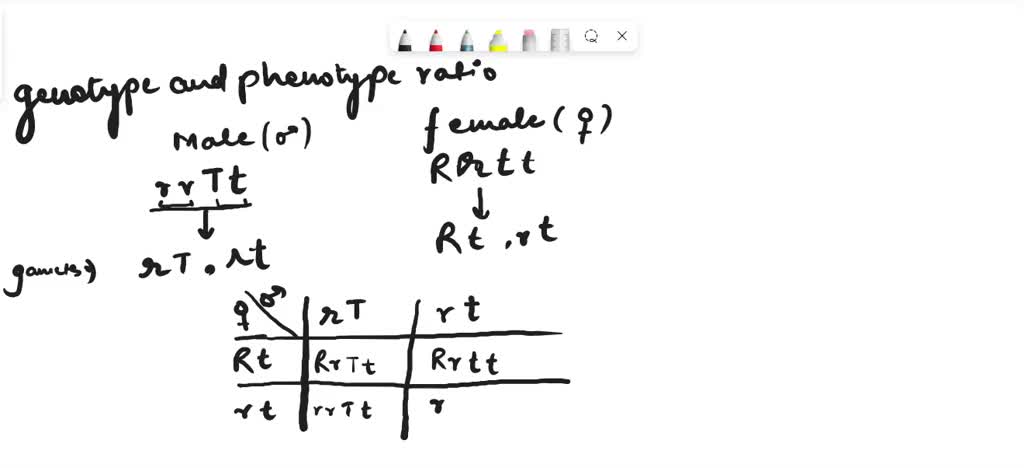 genotype and phenotype ratio
Male (♂) female (♀)
rrTt RrTt
rT, rt Rt, rt
♀ ♂ rT rt
Rt RrTt Rrtt
rt rrTt r